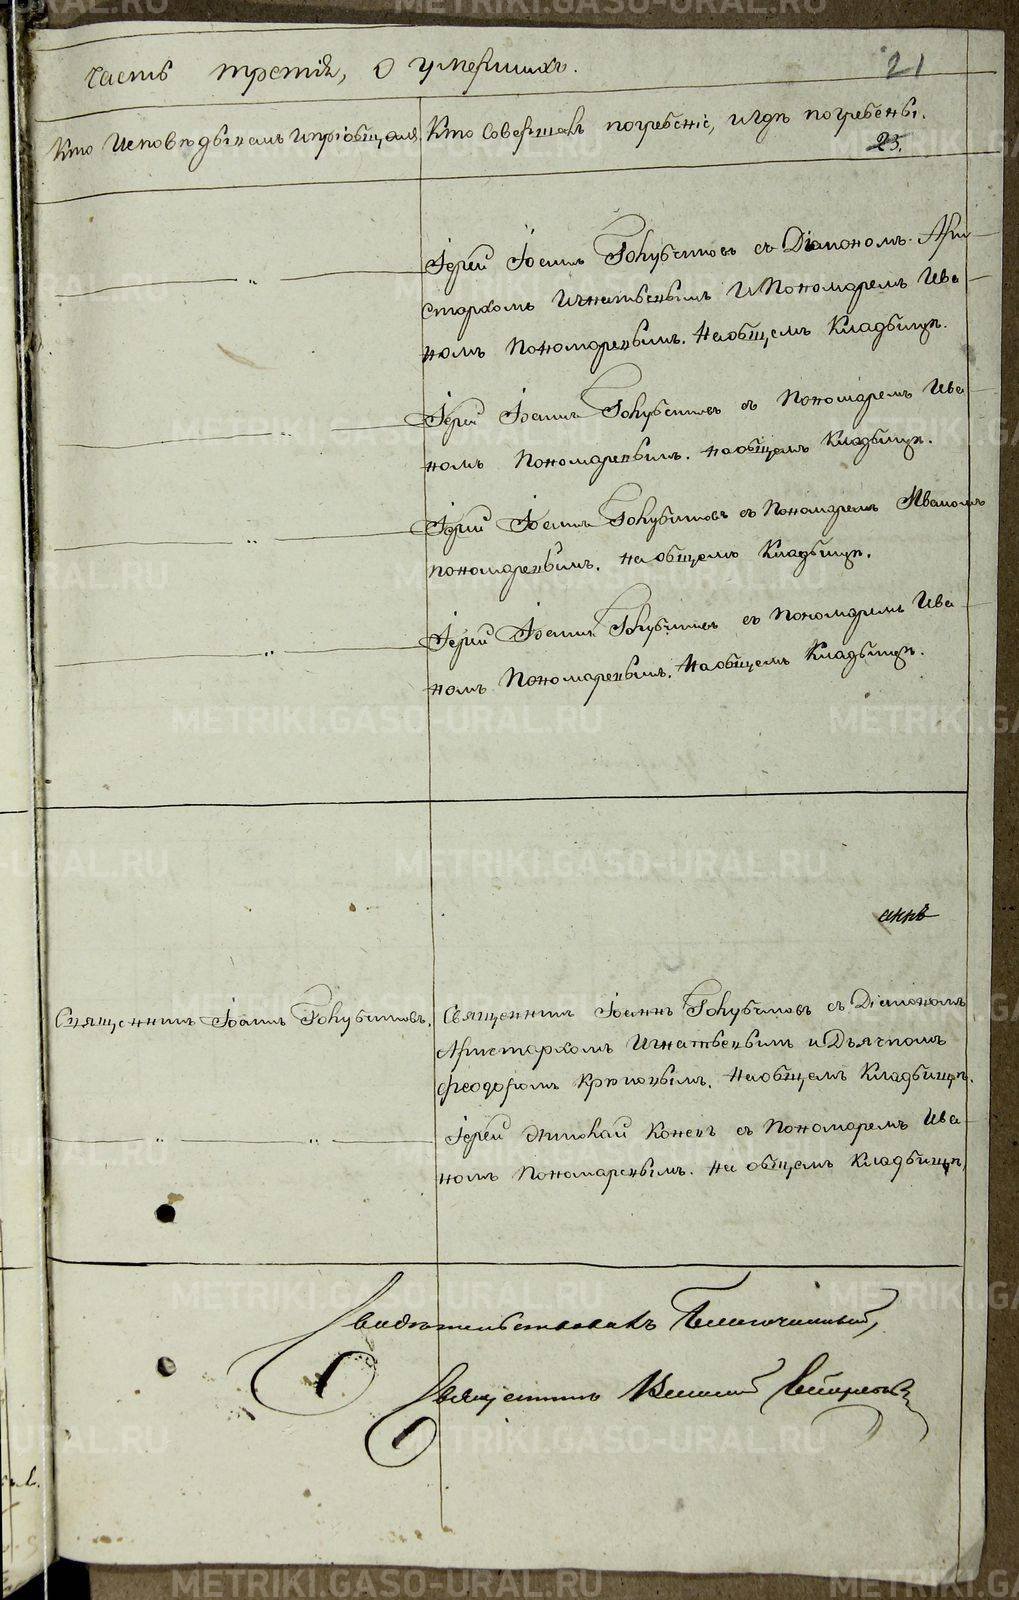 Часть третія, о умершихъ.
21
Кто исповѣдывалъ и пріобщалъ.
Кто совершалъ погребеніе, и гдѣ погребены.
23.
Іерей Іоаннъ Голубчиковъ съ Діакономъ Ари-
стархомъ Игнатьевымъ и Пономаремъ Ива-
номъ Пономаревымъ. На общемъ Кладбищѣ.
Іерей Іоаннъ Голубчиковъ съ Пономаремъ Ива-
номъ Пономаревымъ. На общемъ Кладбищѣ.
Іерей Іоаннъ Голубчиковъ съ Пономаремъ Иваномъ
Пономаревымъ. На общемъ Кладбищѣ.
Іерей Іоаннъ Голубчиковъ съ Пономаремъ Ива-
номъ Пономаревымъ. На общемъ Кладбищѣ.
Священникъ Іоаннъ Голубчиковъ.
Священникъ Іоаннъ Голубчиковъ съ Діакономъ
Аристархомъ Игнатьевымъ и Дьячкомъ
Феодоромъ Крюковымъ. На общемъ Кладбищѣ.
Іерей Николай Коневъ съ Пономаремъ Ива-
номъ Пономаревымъ. На общемъ Кладбищѣ.
Свидѣтельствовалъ Благочинный,
Священникъ
METRIKI.GASO-URAL.RU